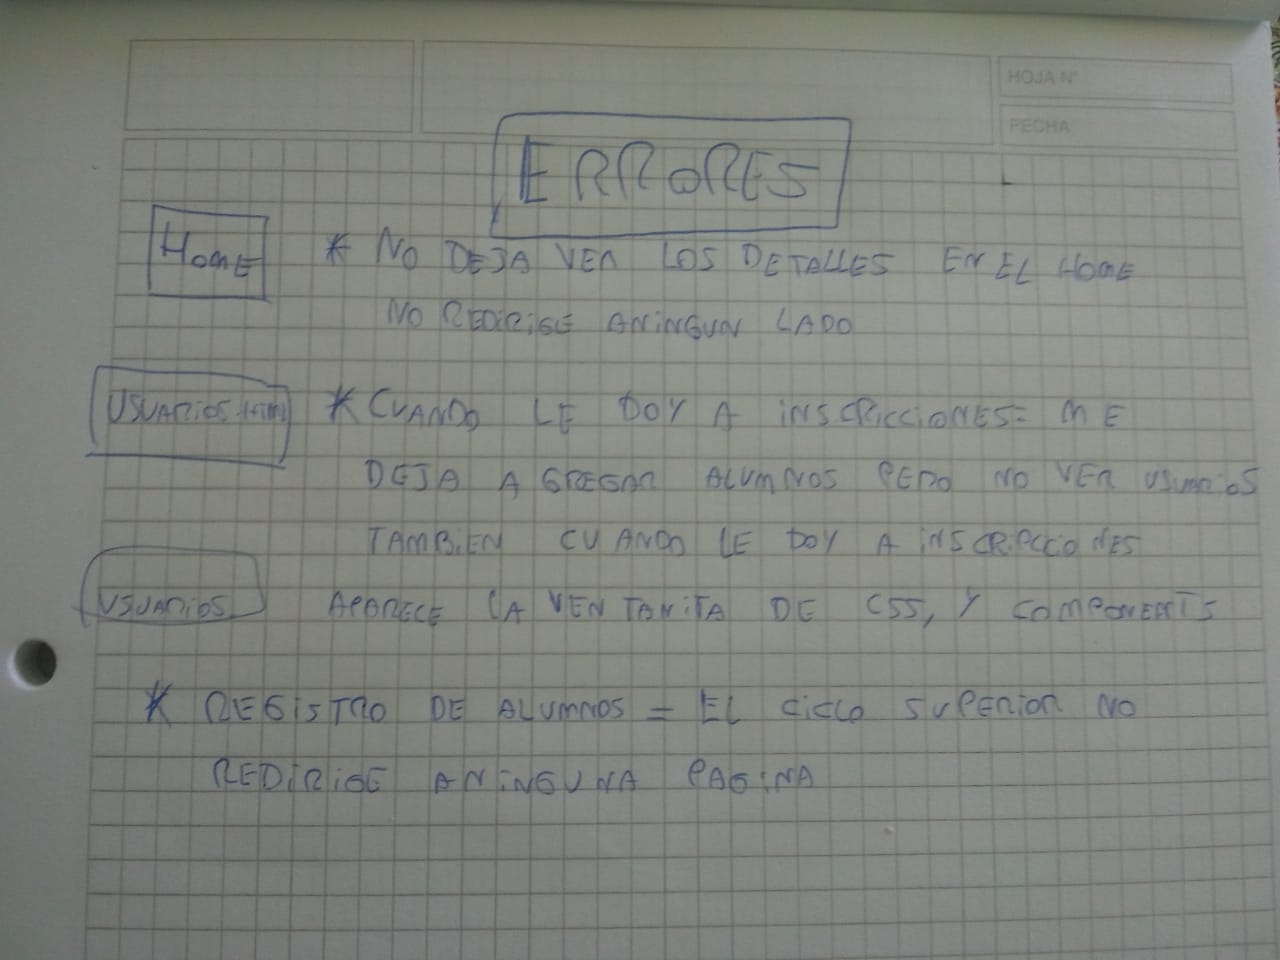 HOJA N°
FECHA
ERRORES
Home * NO DEJA VER LOS DETALLES EN EL HOME
NO REDIRIGE A NINGUN LADO
USUARIOS.HTML * CUANDO LE DOY A INSCRICCIONES= ME
DEJA AGREGAR ALUMNOS PERO NO VER USUARIOS
TAMBIEN CUANDO LE DOY A INSCRIPCCIONES
USUARIOS APARECE LA VENTANITA DE CSS, Y COMPONENTS
* REGISTRO DE ALUMNOS = EL CICLO SUPERIOR NO
REDIRIGE A NINGUNA PAGINA